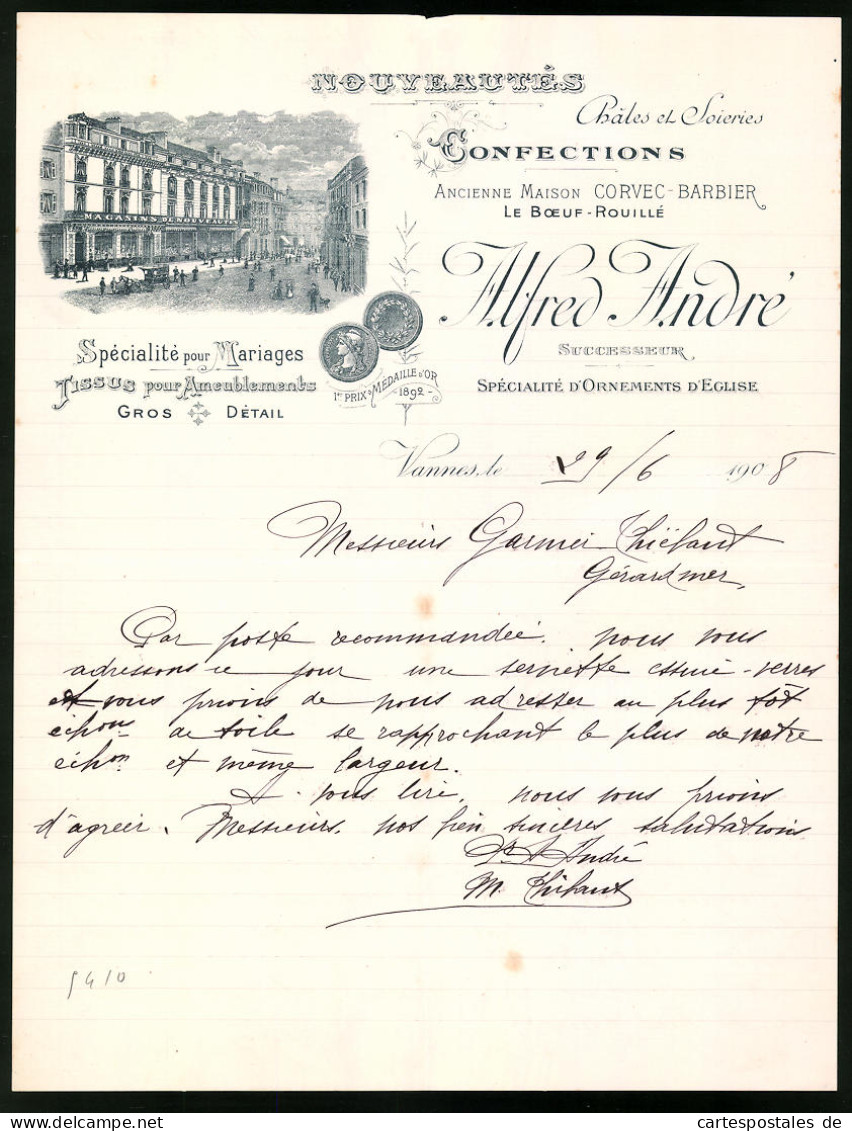 NOUVEAUTÉS
Châles et Soieries
CONFECTIONS
ANCIENNE MAISON CORVEC-BARBIER
LE BŒUF-ROUILLÉ
MAGASINS DE NOUVEAUTÉS
Alfred André
SUCCESSEUR
SPÉCIALITÉ D'ORNEMENTS D'EGLISE
Spécialité pour Mariages
TISSUS pour Ameublements
GROS DÉTAIL
1er PRIX MÉDAILLE D'OR
-1892-
Vannes, le 29/6 1908
Messieurs Garnier-Thiébaut
Gérardmer,
Par poste recommandée, nous vous
adressons ce jour une serviette essuie-verres
et vous prions de nous adresser au plus tôt
échons de toile se rapprochant le plus de notre
échon et même largeur.
A vous lire, nous vous prions
d'agréer, Messieurs, nos bien sincères salutations
Pr A André
M. Thébaut
5410
www.cartespostales.de